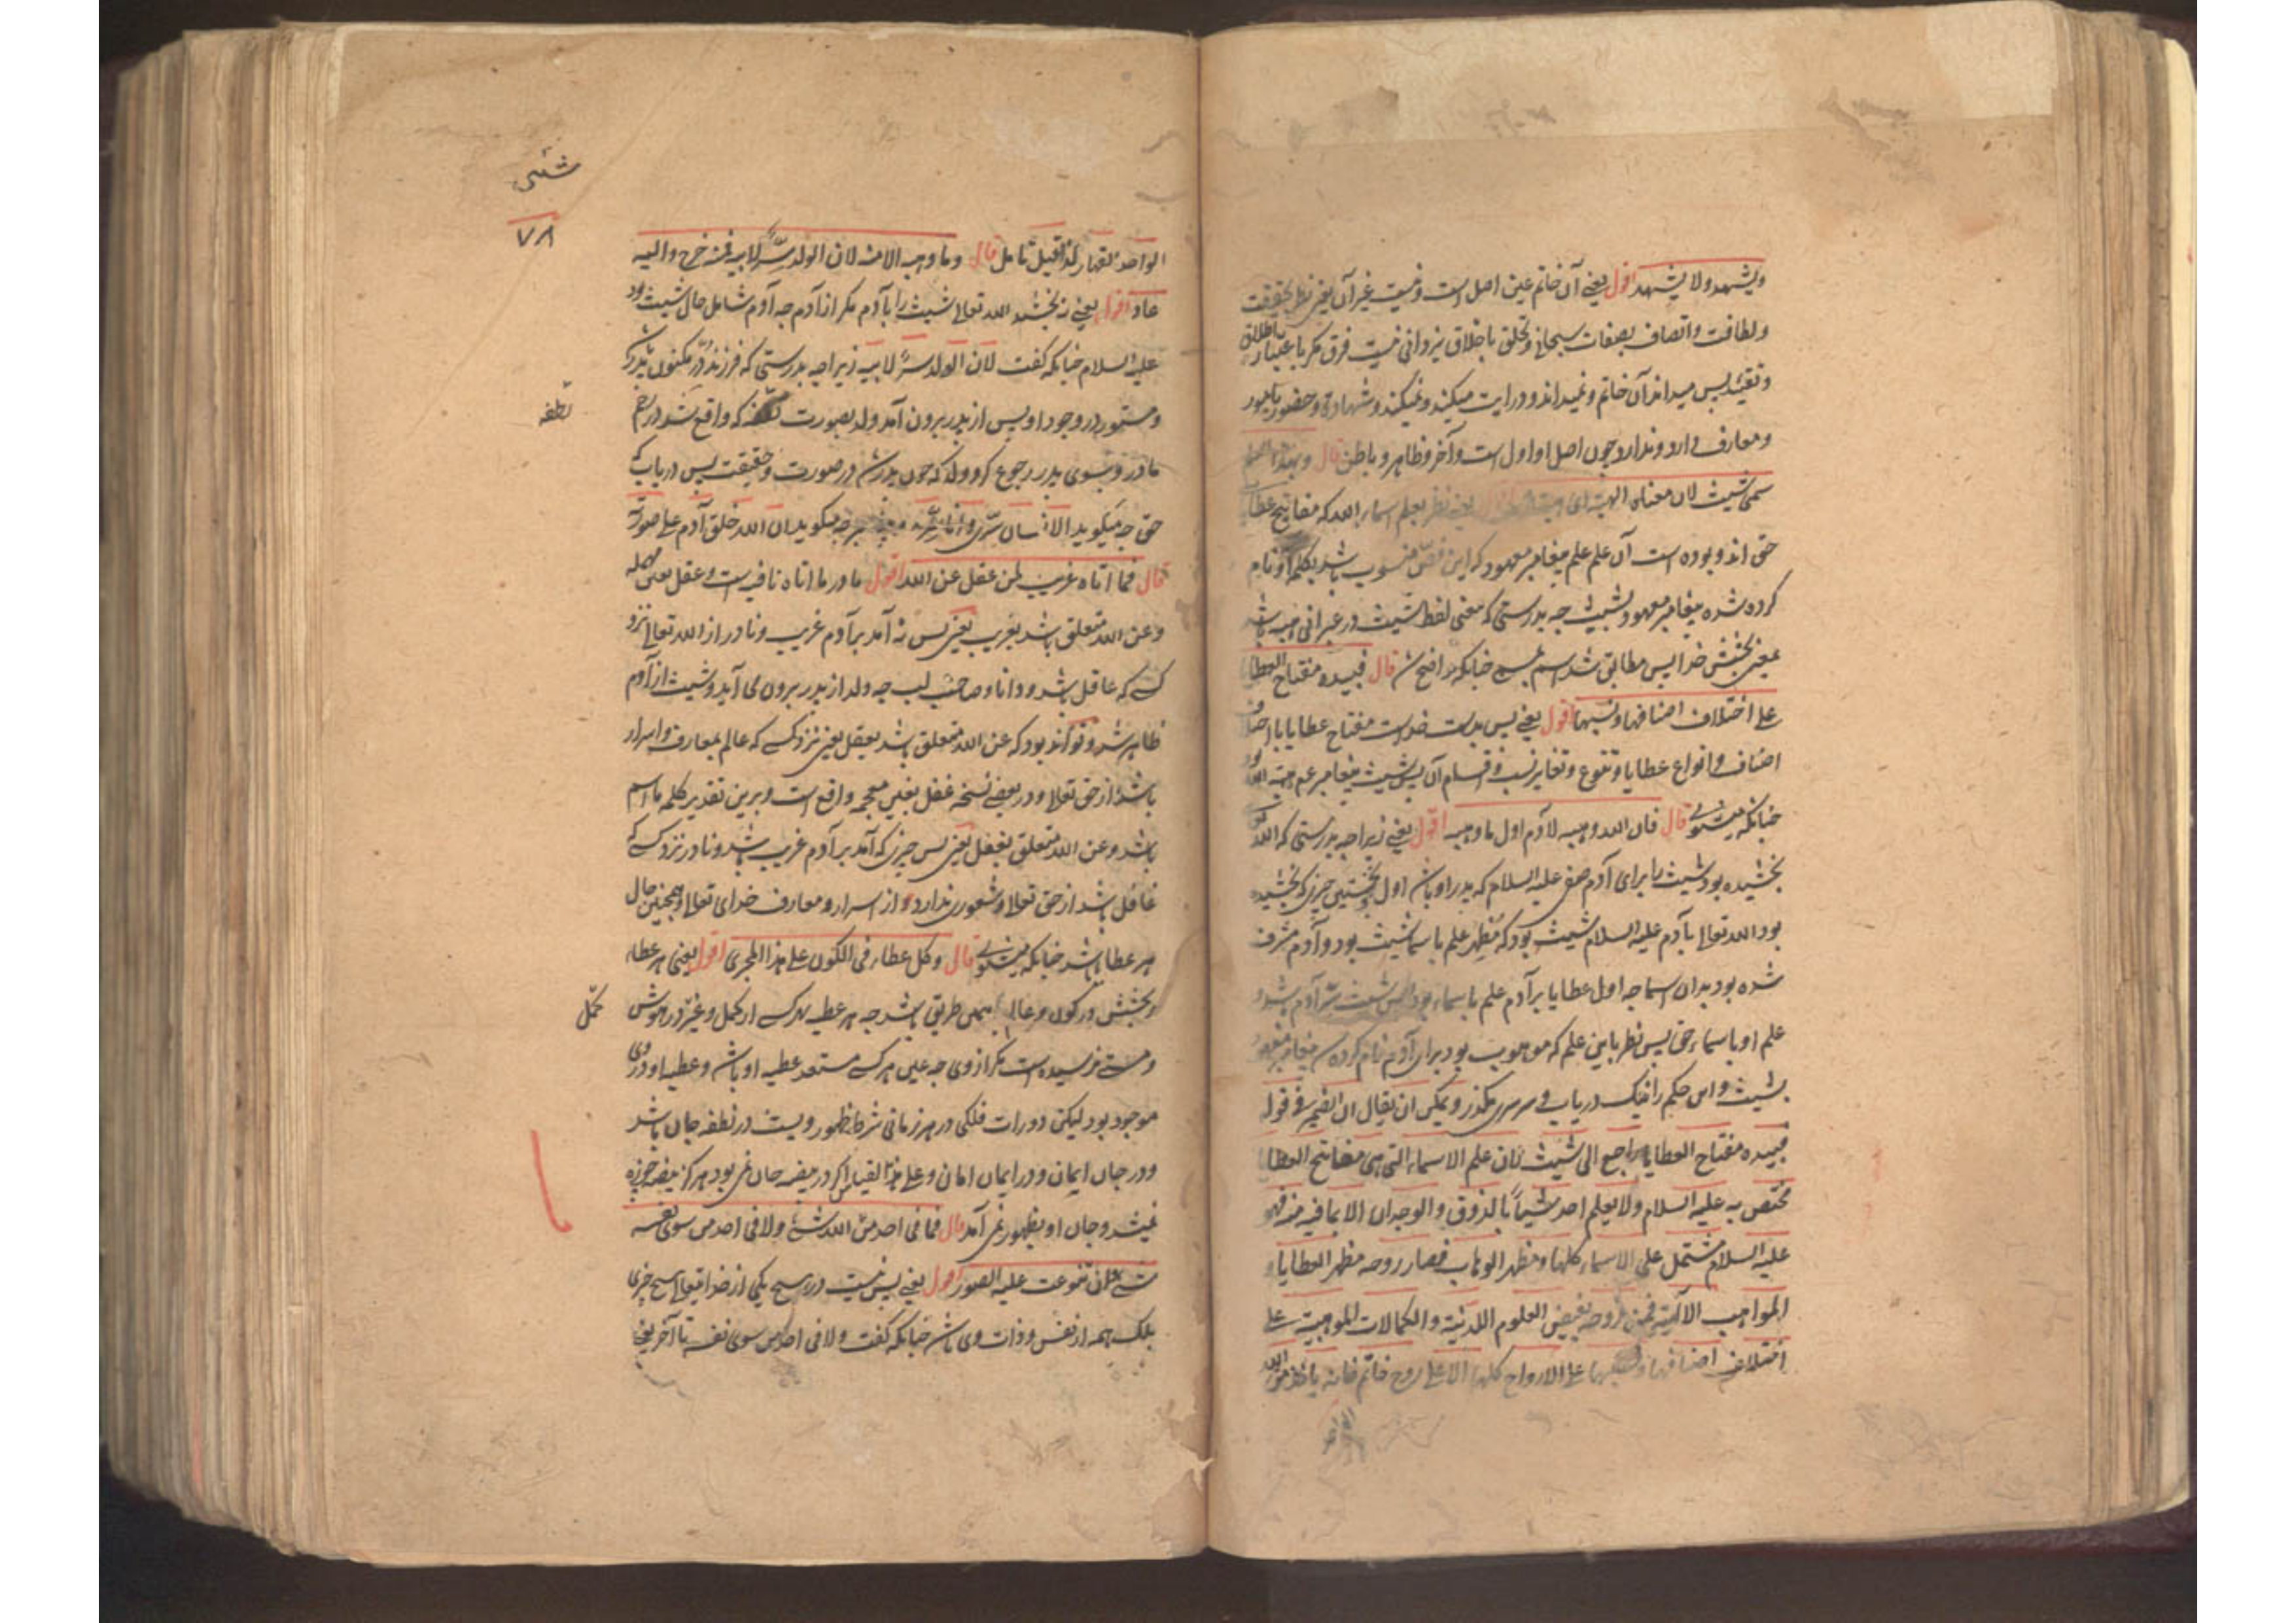 ویشهد ولا یشهد اقول یعنی آن خاتم عین اصل است ونیست غیر آن یعنی نظر بحقیقت
ولطافت واتصاف بصفات سبحانی وتخلق باخلاق یزدانی نیست فرق مکر باعتبار باطلاق
وتقیید پس میداند آن خاتم ونمیداند ودرایت میکند ونمیکند وشهادة وحضور بامور
ومعارف دارد وندارد چون اصل او اول است وآخر وظاهر وباطن قال وبهذا العلم
سمی شیث لان معناه الهبة ای هبة الله یعنی نظر بعلم اسماء الله که مفاتیح عطایا
حق اند وبوده است آن علم علم پیغامبر معهود که این فص منسوب باشد بکلمه او نام
کرده شده پیغامبر معهود بشیث چه بدرستی که معنی لفظ شیث در عبرانی هبه باشد
بمعنی بخشش خدا پس مطابق شد اسم بمسمی چنانکه واضح شد قال فبیده مفتاح العطایا
علی اختلاف اصنافها ونسبها اقول یعنی پس بدست خود است مفتاح عطایا با اختلاف
اصناف وانواع عطایا وتنوع وتغایر نسب واقسام آن پس شیث پیغامبر عم هبة الله بود
چنانکه میشنوی قال فان الله وهبه لآدم اول ما وهبه اقول یعنی زیرا چه بدرستی که الله
بخشیده بود شیث را برای آدم صفی علیه السلام که پدر او باشد اول ونخستین چیزی که بخشیده
بود الله تعالی بآدم علیه السلام شیث بود که مظهر علم باسما شیث بود وآدم مشرف
شده بود بدان اسما چه اول عطایا بر آدم علم باسماء بود پس شیث سر آدم شد و
علم او باسماء حق پس نظر باین علم که موهوب بود برای آدم نام کرده شد پیغامبر معهود
بشیث واین حکم را نیک دریاب وسرسری مکذر ویمکن ان یقال ان الضمیر فی قوله
فبیده مفتاح العطایا راجع الی شیث لان علم الاسماء التی هی مفاتیح العطایا
مختص به علیه السلام ولا یعلم احد شیئا بالذوق والوجدان الا بما فیه منه فهو
علیه السلام مشتمل علی الاسماء کلها ومظهر الوهاب فصار روحه مظهر العطایا و
المواهب الالهیة فمن روحه یفیض العلوم اللدنیة والکمالات الموهبیة علی
اختلاف اصنافها ونسبها علی الارواح کلها الا علی روح خاتم فانه یاخذ من الله
الواحد
شیثی
٧٨
الواحد القهار لما قیل تامل قال وما وهبه الا منه لان الولد سر لابیه فمنه خرج والیه
عاد اقول یعنی نه بخشید الله تعالی شیث را بآدم مکر از آدم چه آدم شامل حال شیث بود
علیه السلام چنانکه کفت لان الولد سر لابیه زیرا چه بدرستی که فرزند در مکنون پدر
ومستور در وجود او پس از پدر برون آمد ولد بصورت نطفه که واقع شد در رحم
نطفه
مادر وبسوی پدر رجوع کرد ولد که چون پدر شد در صورت وحقیقت پس دریاب که
حق چه میکوید الانسان سری وانا سره وپیغمبر چه میکوید ان الله خلق آدم علی صورته
قال فما اتاه غریب لمن عقل عن الله اقول ما در ما اتاه نافیه است وعقل بعین مهمله
وعن الله متعلق باشد بغریب یعنی پس نه آمد بر آدم غریب ونادر از الله تعالی نزد
کسی که عاقل باشد ودانا وصاحب لب چه ولد از پدر برون می آید وشیث از آدم
ظاهر شد وتواند بود که عن الله متعلق باشد بعقل یعنی نزد کسی که عالم بمعارف واسرار
باشد از حق تعالی ودر بعضی نسخه غفل بغین معجمه واقع است وبرین تقدیر کلمه ما اسم
باشد وعن الله متعلق بغفل یعنی پس چیزی که آمد بر آدم غریب باشد ونادر نزد کسی که
غافل باشد از حق تعالی وشعوری ندارد از اسرار ومعارف خدای تعالی وهمچنین حال
هر عطا باشد چنانکه میشنوی قال وکل عطاء فی الکون علی هذا المجری اقول یعنی هر عطاء
وبخشش در کون وعالم بهمین طریق باشد چه هر عطیه بهر کسی از کمل وغیره در هوش
کمل
ومستی نرسیده است مکر از وی چه عین هر کسی مستعد عطیه او باشد وعطیه او در وی
موجود بود لیکن دورات فلکی در هر زمانی شرط ظهور ویست در نطفه جان باشد
ودر جان ایمان ودر ایمان امان وعلی هذا القیاس اکر در بیضه جان نمی بود هرکز بیضه چوزه
نمیشد وجان او بظهور نمی آمد قال فما فی احد من الله شیء ولا فی احد من سوی نفسه
شیء وان تنوعت علیه الصور اقول یعنی پس نیست در هیچ یکی از خدا یتعالی هیچ چیزی
بلکه همه از نفس وذات وی باشد چنانکه کفت ولا فی احد من سوی نفسه تا آخر یعنی